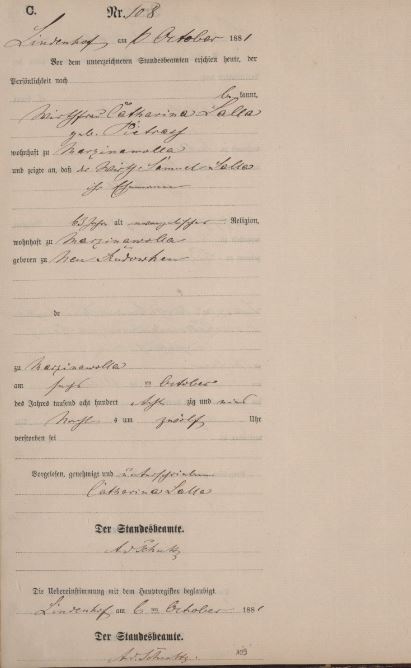 C. Nr. 108
Lindenhof am 6 October 1881
Vor dem unterzeichneten Standesbeamten erschien heute, der
Persönlichkeit nach
be kannt,
Wirthsfrau Catharina Lalla
geb. Pietrass
wohnhaft zu Marzinawolla
und zeigte an, daß der Wirth Samuel Lalla
ihr Ehemann
Jahre alt evangelischer Religion,
wohnhaft zu Marzinawolla
geboren zu Neu
de
zu Marzinawolla
am October
des Jahres tausend acht hundert acht zig und eins
Nachts um zwölf Uhr
verstorben sei
Vorgelesen, genehmigt und unterschrieben
Catharina Lalla
Der Standesbeamte.
Ad Schultz
Die Uebereinstimmung mit dem Hauptregister beglaubigt
Lindenhof am 6 ten October 1881
Der Standesbeamte.
Ad Schultz.